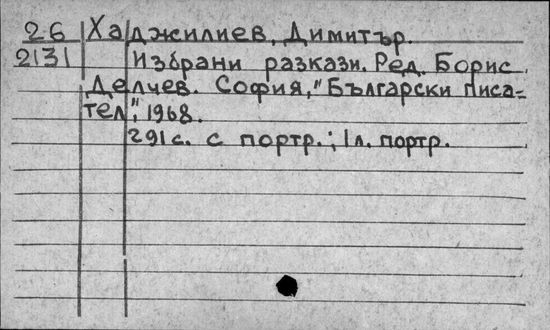 26 Хаджилиев, Димитър.
2131 Избрани разкази. Ред. Борис
Делчев. София, "Български писа-
тел", 1968.
291 с. с портр.; 1 л. портр.